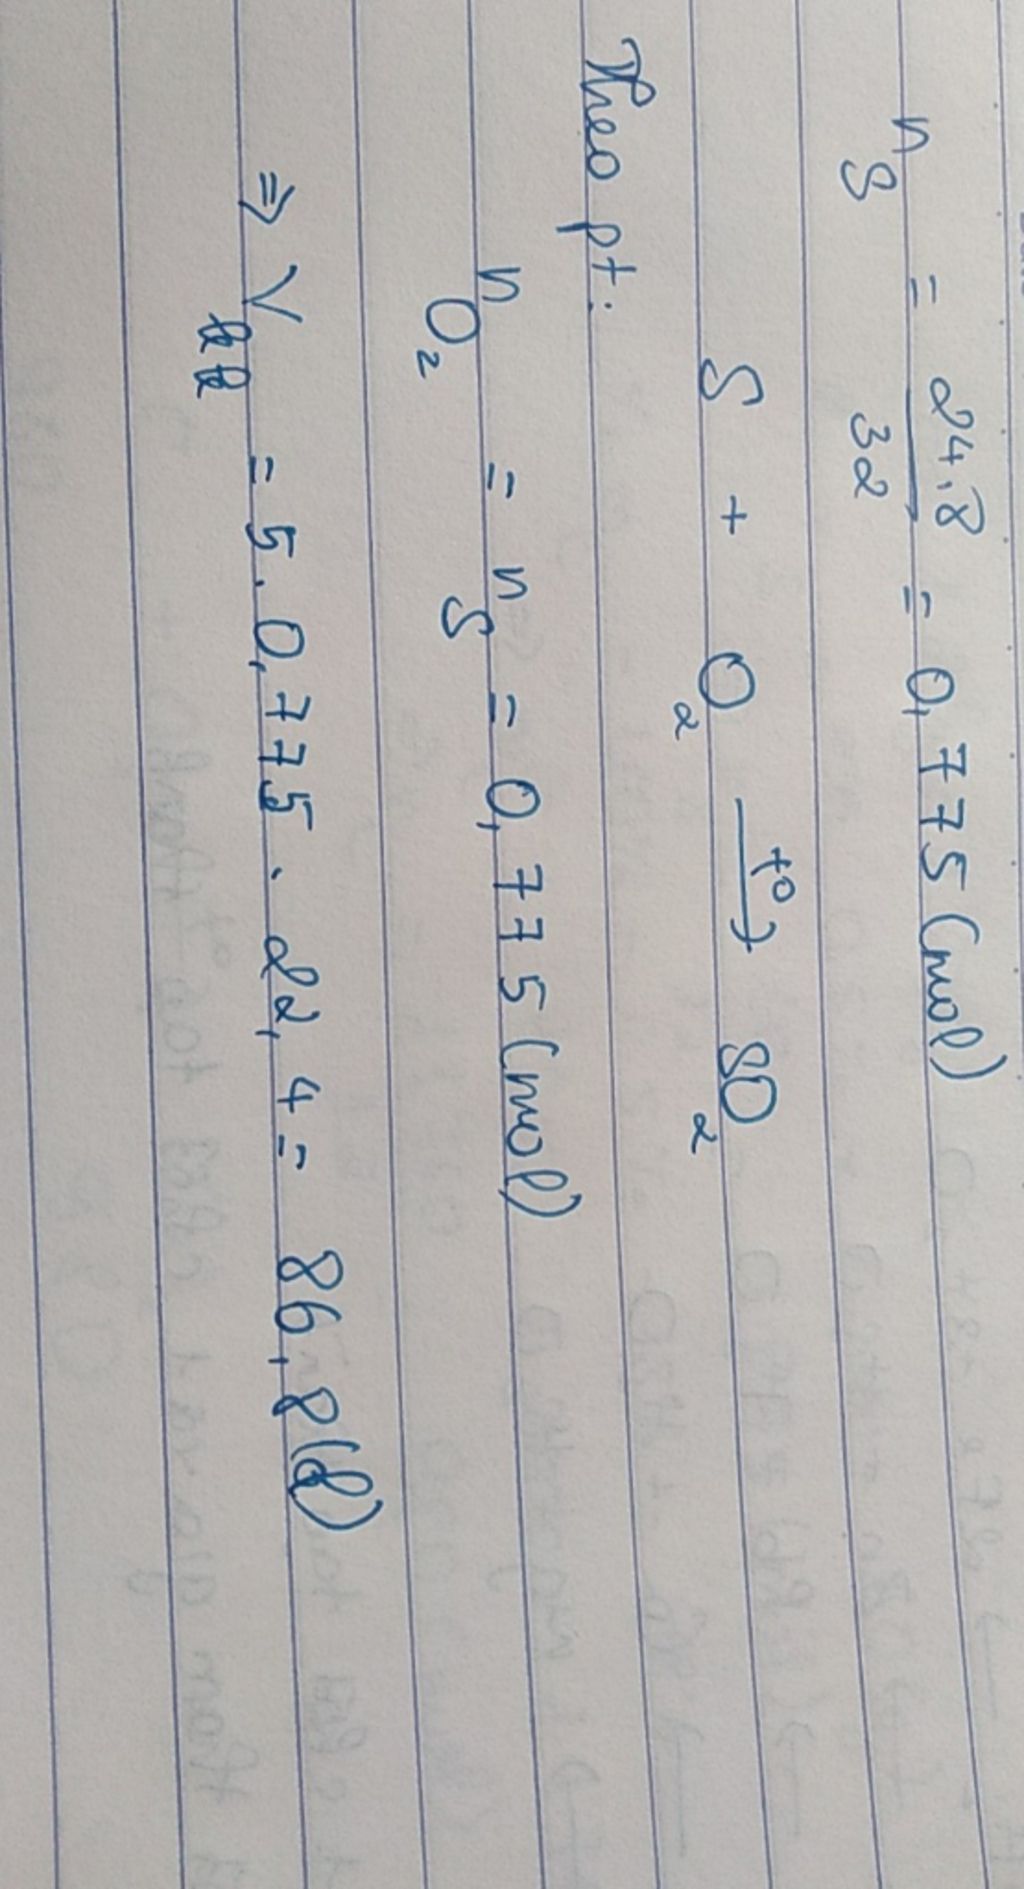 n_S = 24,8/32 = 0,775 (mol)
S + O₂ —t°→ SO₂
Theo pt:
n_O₂ = n_S = 0,775 (mol)
⇒ V_kk = 5 . 0,775 . 22,4 = 86,8 (l)